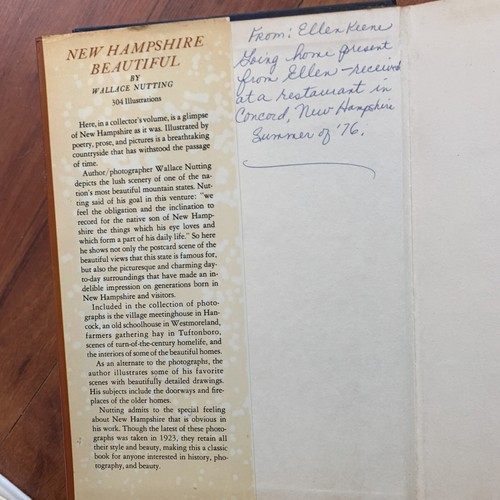 NEW HAMPSHIRE
BEAUTIFUL
BY
WALLACE NUTTING
304 Illustrations
Here, in a collector's volume, is a glimpse
of New Hampshire as it was. Illustrated by
poetry, prose, and pictures is a breathtaking
countryside that has withstood the passage
of time.
Author/photographer Wallace Nutting
depicts the lush scenery of one of the na-
tion's most beautiful mountain states. Nut-
ting said of his goal in this venture: "we
feel the obligation and the inclination to
record for the native son of New Hamp-
shire the things which his eye loves and
which form a part of his daily life." So here
he shows not only the postcard scene of the
beautiful views that this state is famous for,
but also the picturesque and charming day-
to-day surroundings that have made an in-
delible impression on generations born in
New Hampshire and visitors.
Included in the collection of photo-
graphs is the village meetinghouse in Han-
cock, an old schoolhouse in Westmoreland,
farmers gathering hay in Tuftonboro,
scenes of turn-of-the-century homelife, and
the interiors of some of the beautiful homes.
As an alternate to the photographs, the
author illustrates some of his favorite
scenes with beautifully detailed drawings.
His subjects include the doorways and fire-
places of the older homes.
Nutting admits to the special feeling
about New Hampshire that is obvious in
his work. Though the latest of these photo-
graphs was taken in 1923, they retain all
their style and beauty, making this a classic
book for anyone interested in history, pho-
tography, and beauty.
From: Ellen Keene
Going home present
from Ellen - received
at a restaurant in
Concord, New Hampshire
Summer of '76.